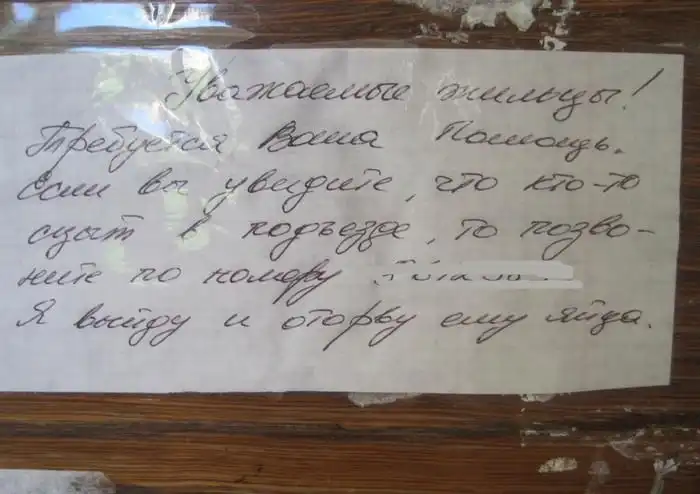 Уважаемые жильцы!
Требуется Ваша Помощь.
Если вы увидите, что кто-то
сцыт в подъезде, то позво-
ните по номеру
Я выйду и оторву ему яйца.